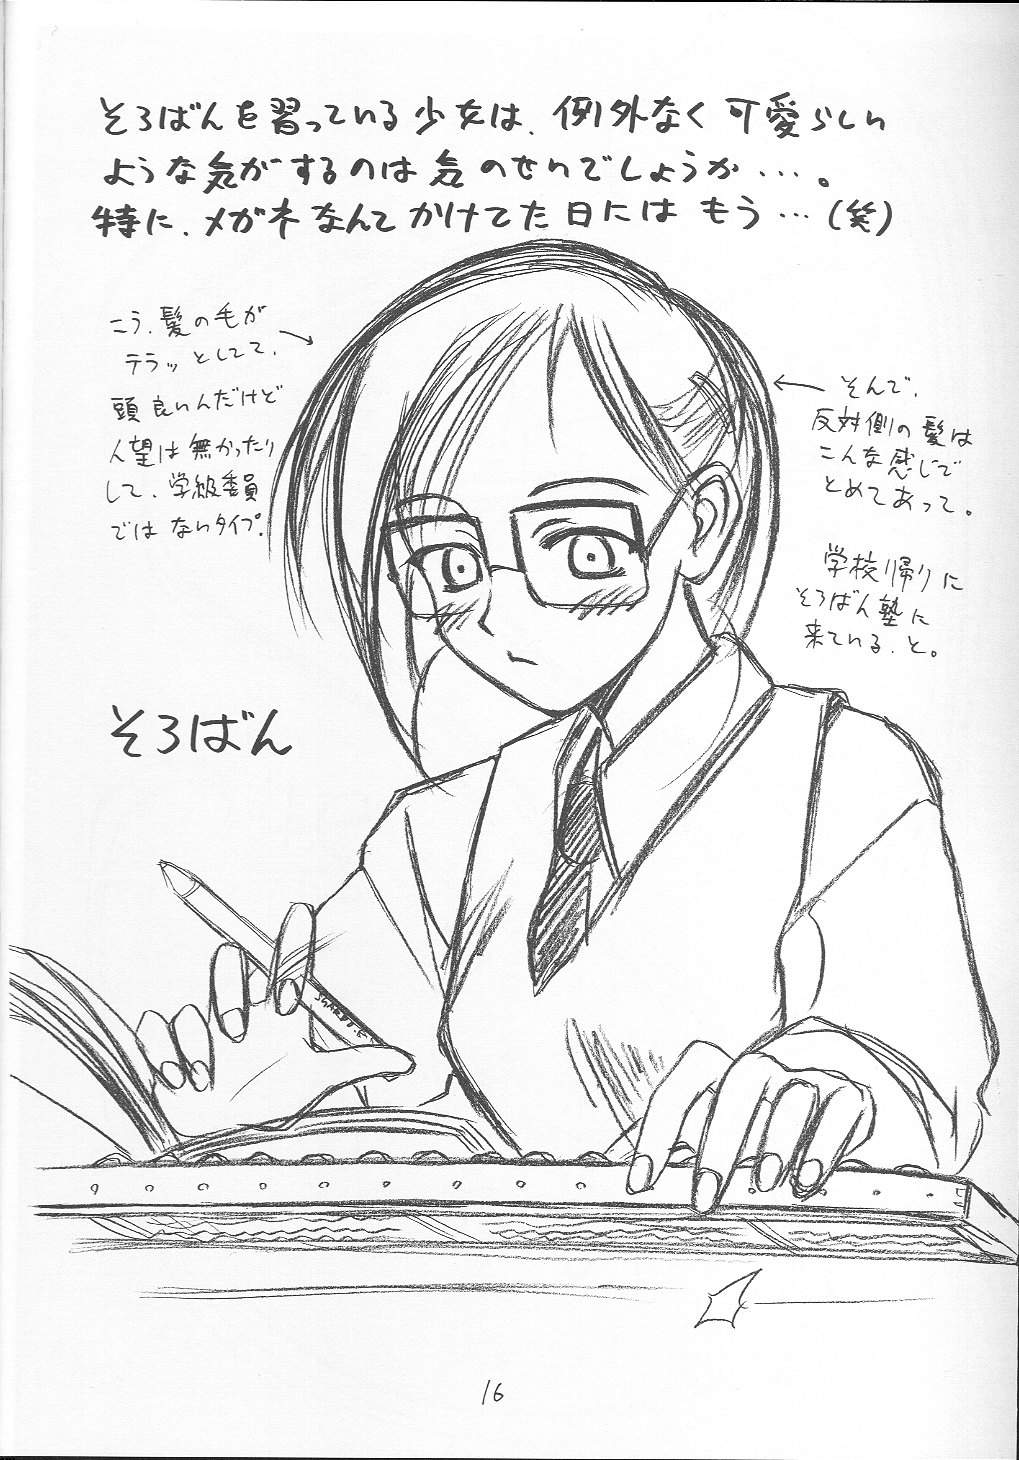 そろばんを習っている少女は、例外なく可愛らしい
ような気がするのは気のせいでしょうか…。
特に、メガネなんてかけてた日にはもう…(笑)
こう、髪の毛が
テラッとしてて、
頭良いんだけど
人望は無かったり
して、学級委員
ではないタイプ。
そんで、
反対側の髪は
こんな感じで
とめてあって。
学校帰りに
そろばん塾に
来ている、と。
そろばん
16